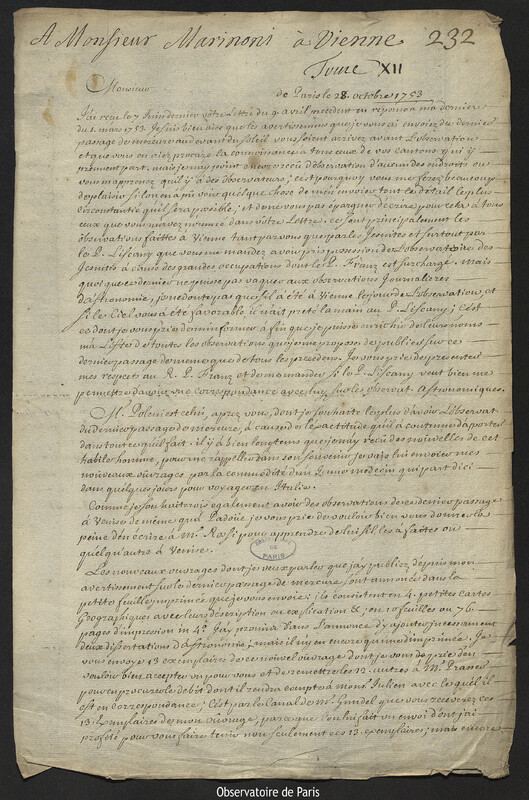 A Monsieur Marinoni à Vienne 232
Tome XII
Monsieur de Paris le 28. octobre 1753
J'ai reçu le 7 Juin dernier vôtre Lettre du 9 avril precedent en réponse à ma derniere
du 1. mars 1753. Je suis bien aise que les avertissemens que je vous ai envoiez du dernier
passage de mercure au devant du Soleil vous soient arrivez avant l'observation
et que vous en aiez procuré la connoissance à tous ceux de vos cantons qui y
prennent part. mais je n'ay point encore reçu d'observation d'aucun des endroits ou
vous m'apprenez qu'il y a des observateurs; c'est pourquoy vous me feréz beaucoup
de plaisir si l'on en a pû voir quelque chose de m'en envoier tout le détail le plus
circonstantié qu'il sera possible; et de ne vous pas épargner d'écrire pour cela à tous
ceux que vous m'avez nommé dans vôtre Lettre. ce sont principalement les
observations faittes à Vienne tant par vous que par les Jesuites et surtout par
le P. Liscany que vous me mandez avoir pris possession de l'observatoire des
Jesuites à cause des grandes occupations dont le P. Franz est surchargé. mais
quoique ce dernier ne puisse pas vaquer aux observations Journalieres
d'astronomie, je ne doute pas que s'il a été à Vienne le jour de l'observation, et
si le Ciel vous a été favorable, il n'ait prété la main au P. Liscany; c'est
ce dont je vous prie de m'informer à fin que je puisse enrichir de leurs noms
ma Liste de toutes les observations que je me propose de publier sur ce
dernier passage de meme que de tous les precedens. Je vous prie de presenter
mes respects au R. P. Franz et de me mander si le P. Liscany veut bien me
permettre d'avoir une correspondance avec luy sur les observat. Astronomiques.
M. Poleni est celui, aprez vous, dont je souhaite le plus d'avoir l'observat.
du dernier passage de mercure, à cause de l'exactitude qu'il a coutume d'aporter
dans tout ce qu'il fait. il y a bien longtems que je n'ay reçu des nouvelles de cet
habile homme, pour me rappeller dans son souvenir je vais lui envoier mes
nouveaux ouvrages par la commodité d'un Jeune medecin qui part d'ici
dans quelques jours pour voyager en Italie.
Comme je souhaiterois également avoir des observations de ce dernier passage
à Venise de même que Padoüe je vous prie de vouloir bien vous donner la
peine d'en écrire à Mr. Rossi pour apprendre de lui s'il l'a faittes ou
quelqu'autre à Venise.
OBSERVATOIRE DE PARIS
Les nouveaux ouvrages dont je veux parler que j'ay publiez depuis mon
avertissement sur le dernier passage de mercure sont annoncé dans la
petite feuille imprimée que je vous envoie; ils consistent en 4. petites Cartes
Geographiques avec leurs description ou explication &c, en 10 feuilles ou 76.
pages d'impression in 4.° J'ay promis dans l'annonce d'y ajouter incessament
deux dissertations d'Astronomie; mais il n'y en encore qu'une d'imprimée. Je
vous envoye 13 exemplaire de ce nouvel ouvrage dont je vous demande de
vouloir bien accepter un pour vous et de remettre les 12 autres à Mr. Prasser
pour en procurer le debit dont il rendra compte à Monsr. Julien avec lequel il
est en correspondance; C'est par le Canal de Mr. Gmidel que vous recevrez ces
13. Exemplaires de mon ouvrage, parce que l'on lui fait un envoi dont j'ai
profité pour vous faire tenir non seulement ces 13 exemplaires; mais encore
Observatoire de Paris